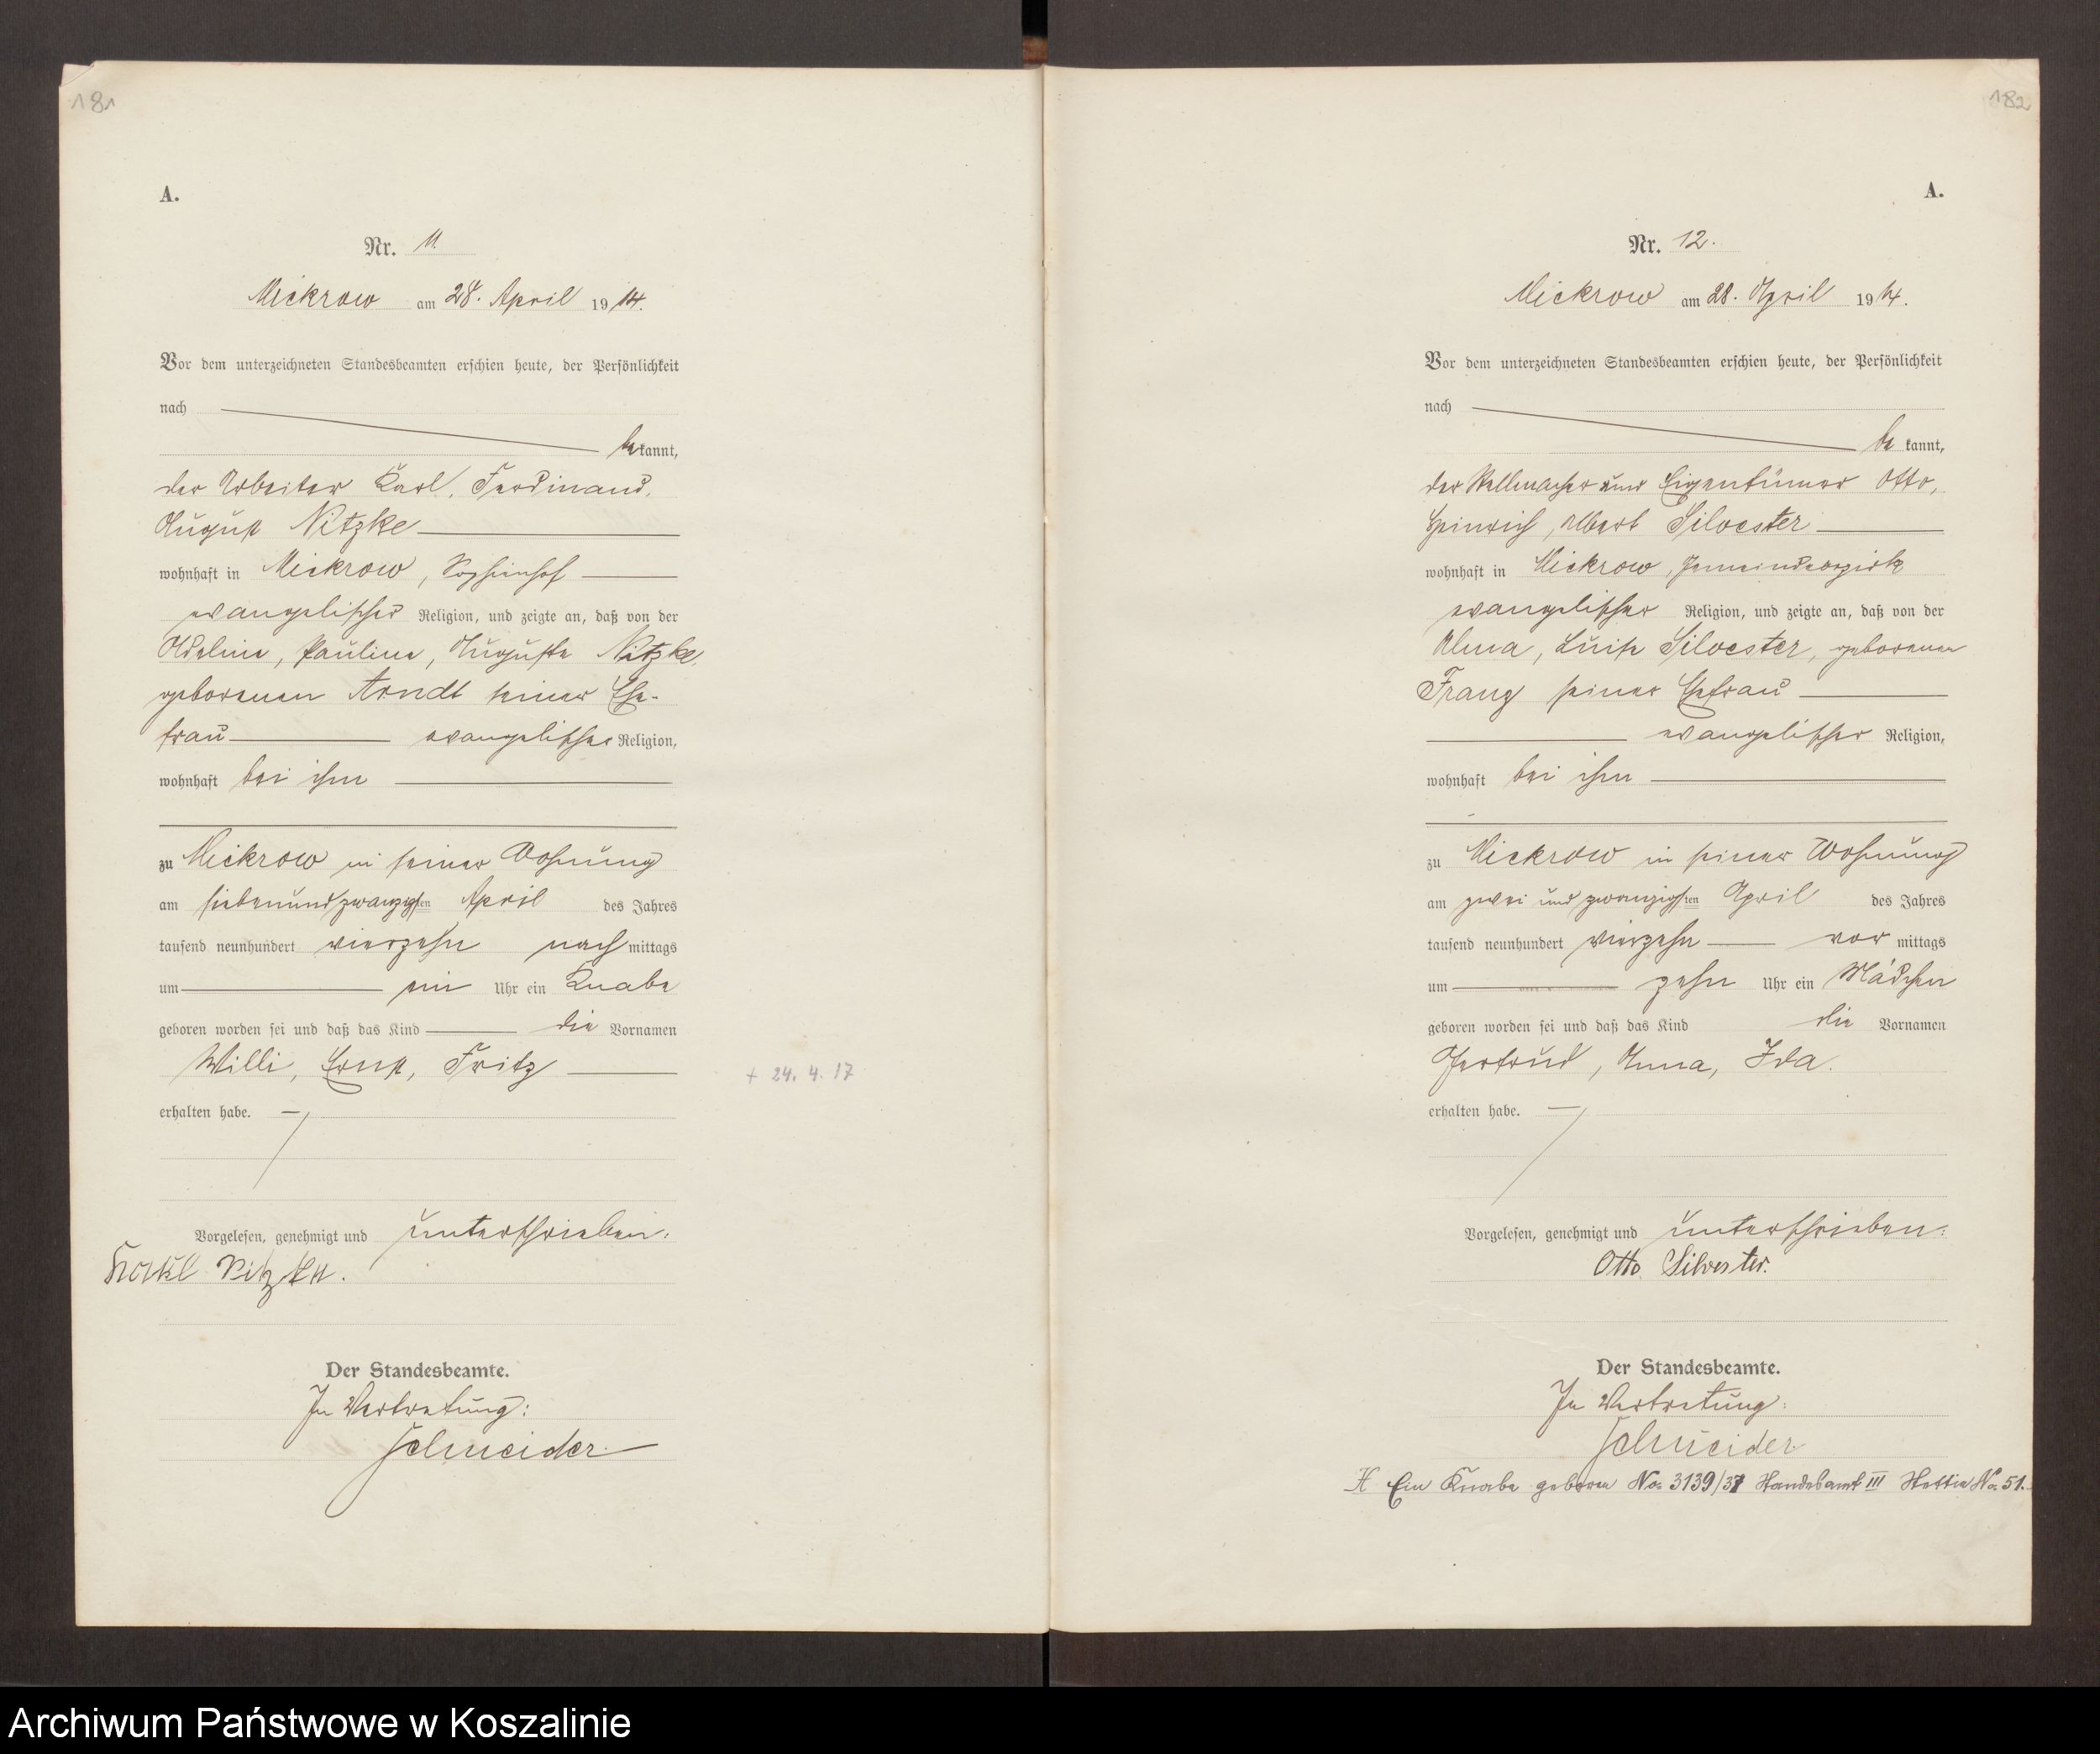 181
A.
Nr. 11.
Mickrow am 28. April 1914.
Vor dem unterzeichneten Standesbeamten erschien heute, der Persönlichkeit
nach
bekannt,
der Arbeiter Karl, Ferdinand,
August Nitzke
wohnhaft in Mickrow, Sophienhof
evangelischer Religion, und zeigte an, daß von der
Adeline, Pauline, Auguste Nitzke,
geborenen Arndt seiner Ehe-
frau evangelischer Religion,
wohnhaft bei ihm
zu Mickrow in seiner Wohnung
am siebenundzwanzigsten April des Jahres
tausend neunhundert vierzehn nachmittags
um ein Uhr ein Knabe
geboren worden sei und daß das Kind die Vornamen
Willi, Ernst, Fritz
+ 24. 4. 17
erhalten habe.
Vorgelesen, genehmigt und unterschrieben.
Karl Nitzke.
Der Standesbeamte.
In Vertretung:
Schneider.
182
A.
Nr. 12.
Mickrow am 28. April 1914.
Vor dem unterzeichneten Standesbeamten erschien heute, der Persönlichkeit
nach
bekannt,
der Stellmacher und Eigentümer Otto,
Heinrich, Albert Silvester
wohnhaft in Mickrow, Gemeindebezirk
evangelischer Religion, und zeigte an, daß von der
Alma, Luise Silvester, geborenen
Franz seiner Ehefrau
evangelischer Religion,
wohnhaft bei ihm
zu Mickrow in seiner Wohnung
am zwei und zwanzigsten April des Jahres
tausend neunhundert vierzehn vormittags
um zehn Uhr ein Mädchen
geboren worden sei und daß das Kind die Vornamen
Gertrud, Anna, Ida.
erhalten habe.
Vorgelesen, genehmigt und unterschrieben:
Otto Silvester.
Der Standesbeamte.
In Vertretung:
Schneider
Ein Knabe geboren No. 3139/37 Standesamt III Stettin No. 51.
Archiwum Państwowe w Koszalinie